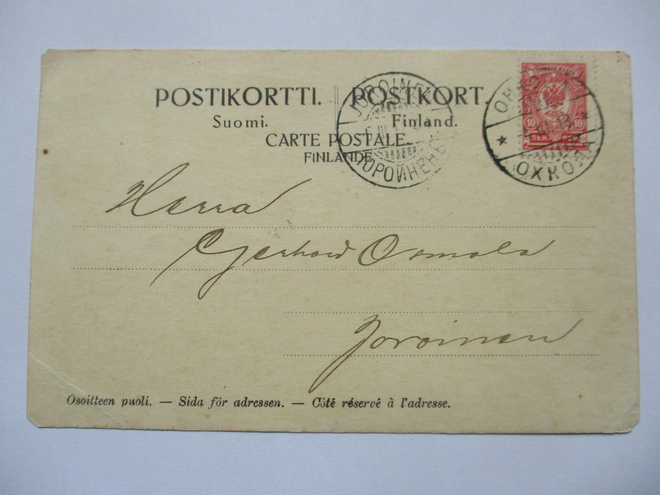 POSTIKORTTI. POSTKORT.
Suomi. Finland.
CARTE POSTALE.
FINLANDE
JOROINEN
ІОРОЙНЕНЪ
10 10
Herra
Gerhard Osmala
Joroinen
Osoitteen puoli. — Sida för adressen. — Côté réservé à l'adresse.